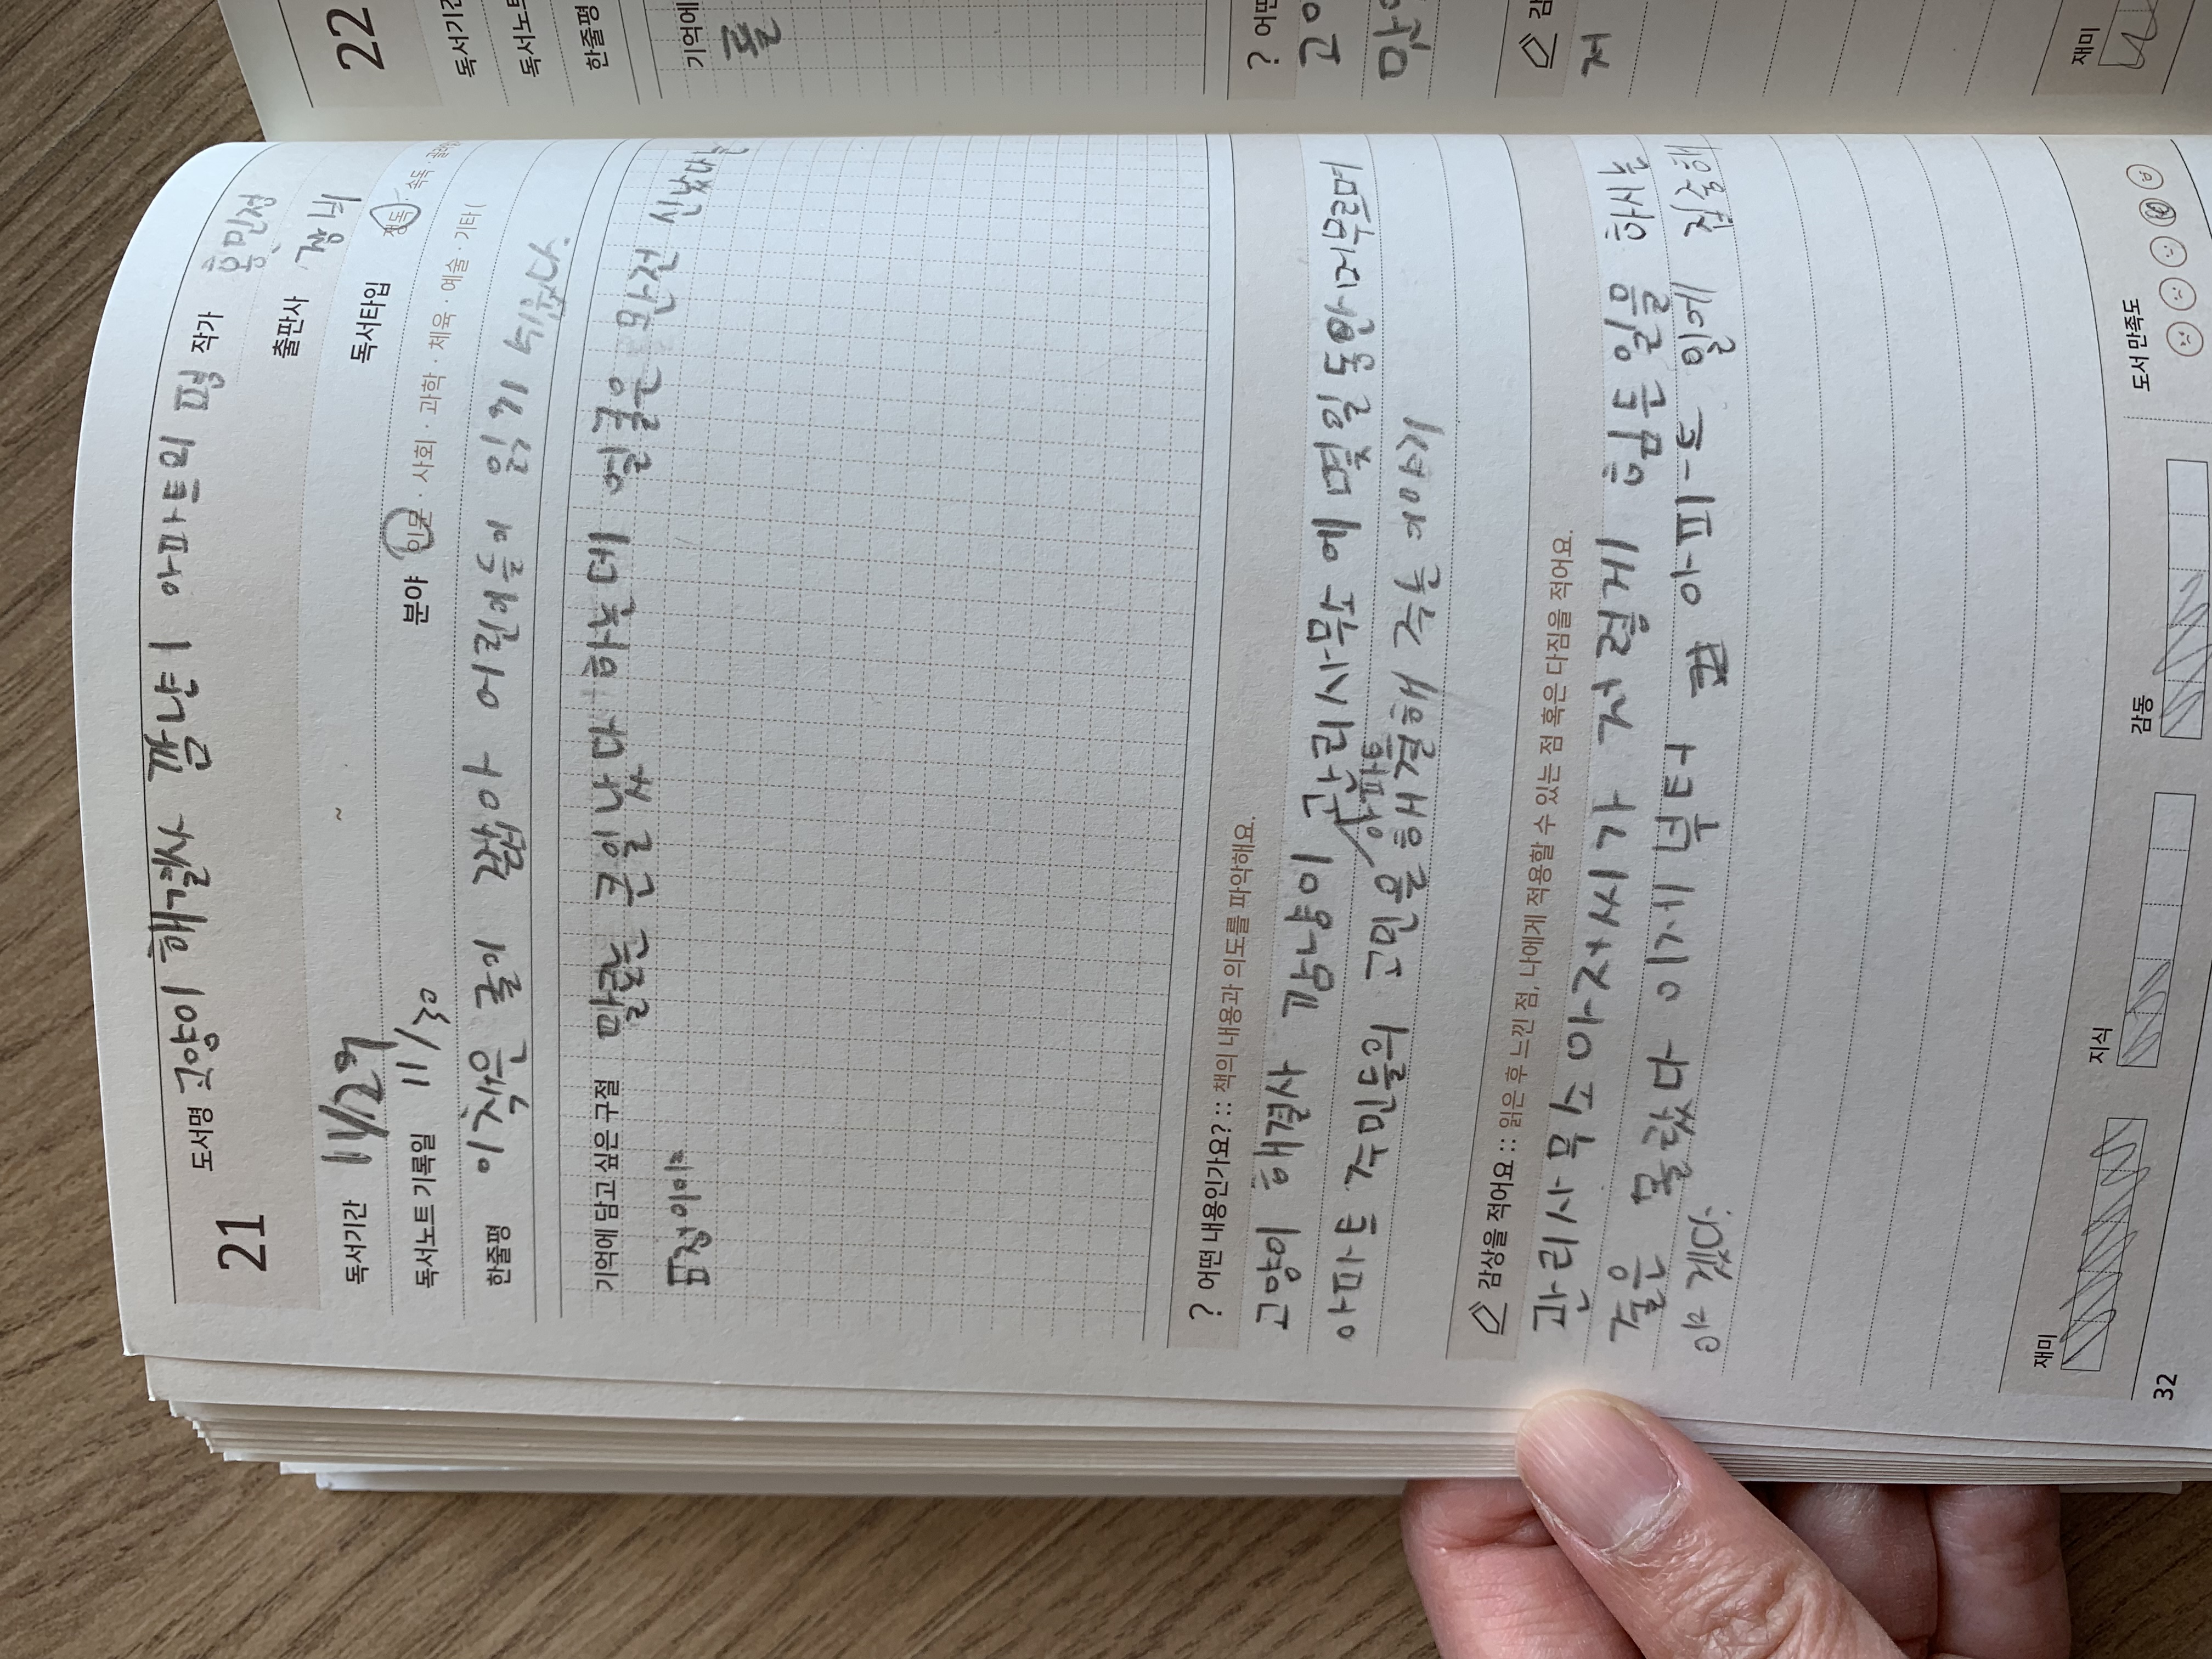 21
도서명 고양이 해결사 깜냥 1 아파트의 평 작가 홍민정
출판사 창비
독서기간 11/29 ~
독서타입 정독 · 속독 ·
독서노트 기록일 11/30
분야 인문 · 사회 · 과학 · 체육 · 예술 · 기타 (
한줄평 이 책은 글이 짧아 어린이들이 읽기 쉬웠다.
기억에 담고 싶은 구절 말로는 큰일 났다 하는데 얼굴은 완전 신났다는
표정이야
? 어떤 내용인가요? :: 책의 내용과 의도를 파악해요.
고양이 해결사 깜냥이 관리사무소에 몇일 동안 머무르며
아파트
아파트 주민들의 고민을 해결해 주는 이야기
감상을 적어요 :: 읽은 후 느낀 점, 나에게 적용할 수 있는 점 혹은 다짐을 적어요.
관리사무소 아저씨가 저렇게 힘든 일을 하시는
줄은 몰랐다 이제부터 아파트 일에 집중해
야겠다.
재미
지식
감동
도서 만족도
32
22
독서기간
독서노트
한줄평
기억에
를
? 어떤
고
감
저
재미